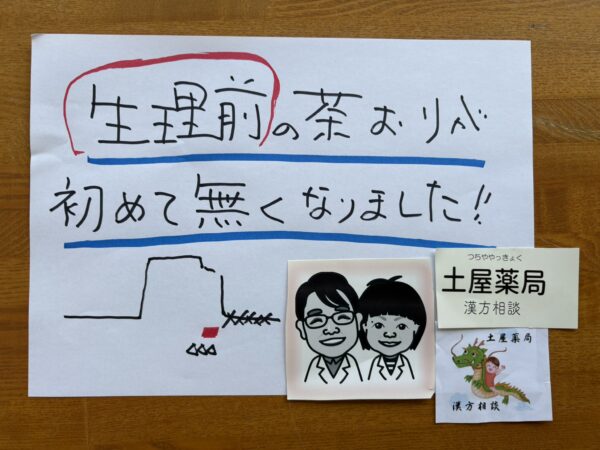 生理前の茶おりが
初めて無くなりました!!
つちややっきょく
土屋薬局
漢方相談
土屋薬局
漢方相談